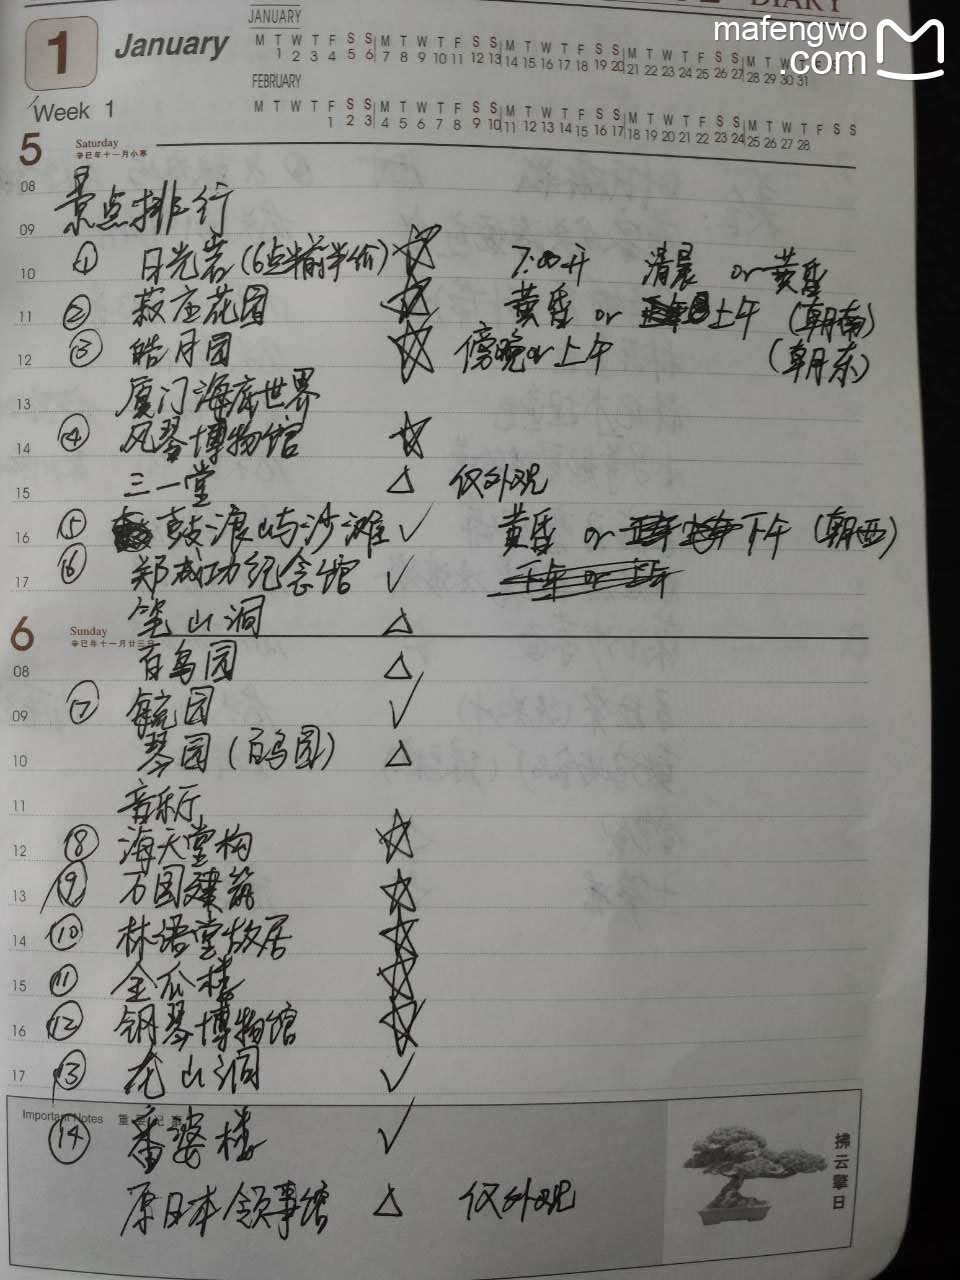 DIARY
mafengwo
.com
1 January
JANUARY
M T W T F S S M T W T F S S M T W T F S S M T W T F S S M T W T F S S
1 2 3 4 5 6 7 8 9 10 11 12 13 14 15 16 17 18 19 20 21 22 23 24 25 26 27 28 29 30 31
FEBRUARY
Week 1
M T W T F S S M T W T F S S M T W T F S S M T W T F S S M T W T F S S
1 2 3 4 5 6 7 8 9 10 11 12 13 14 15 16 17 18 19 20 21 22 23 24 25 26 27 28
5 Saturday
辛巳年十一月小寒
08 景点排行
09
① 日光岩(6点半前半价) ☆ 7:00开 清晨 or 黄昏
10
② 菽庄花园 ☆ 黄昏 or 上午 (朝南)
11
③ 皓月园 ☆ 傍晚or上午 (朝东)
12
厦门海底世界
13
④ 风琴博物馆 ☆
14
三一堂 △ 仅外观
15
⑤ 鼓浪屿沙滩 ✓ 黄昏 or 下午 (朝西)
16
⑥ 郑成功纪念馆 ✓
17
笔山洞 △
6 Sunday
辛巳年十一月廿三日
百鸟园 △
08
⑦ 毓园 ✓
09
琴园(百鸟园) △
10
音乐厅
11
⑧ 海天堂构 ☆
12
⑨ 万国建筑 ☆
13
⑩ 林语堂故居 ☆
14
⑪ 金瓜楼 ☆
15
⑫ 钢琴博物馆 ☆
16
⑬ 龙山洞 ✓
17
Important Notes 重要记事
⑭ 番婆楼 ✓
原日本领事馆 △ 仅外观
拂云擎日